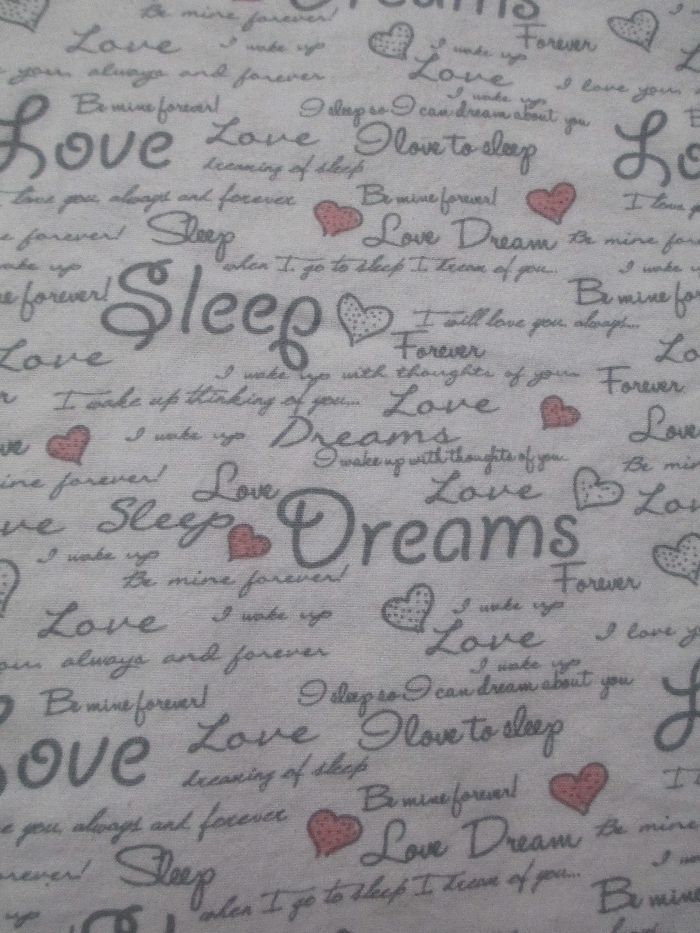 Be mine forever! Dreams
Love I wake up I wake up Forever
you, always and forever Love I love you,
Be mine forever! I wake up
I sleep so I can dream about you
Love Love I love to sleep Lo
dreaming of sleep
love you, always and forever Be mine forever! I love
forever! Sleep Love Dream Be mine
wake up when I go to sleep I dream of you... I wake
forever! Sleep Be mine
I will love you, always...
Love Forever Lo
I wake up with thoughts of you Forever
I wake up thinking of you... Love
I wake up Dreams Love
I wake up with thoughts of you Be
mine forever! Love Love Lov
ve Sleep Dreams
I wake up
Be mine forever! Forever
Love I wake up I wake up
Love I love y
always and forever I wake up
Be mine forever! I sleep so I can dream about you
ove Love I love to sleep
dreaming of sleep
Be mine forever! I
you, always and forever Love Dream Be mine
Sleep
when I go to sleep I dream of you... Be mine
up